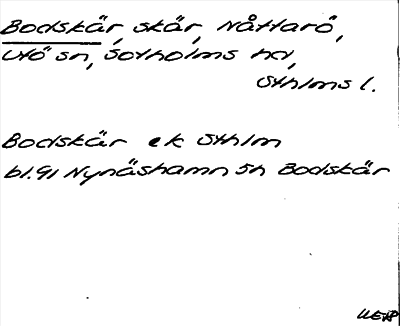 Bodskär, skär, Nåttarö,
Utö sn, Sotholms hd,
Sthlms l.
Bodskär ek Sthlm
bl. 91 Nynäshamn 5h Bodskär